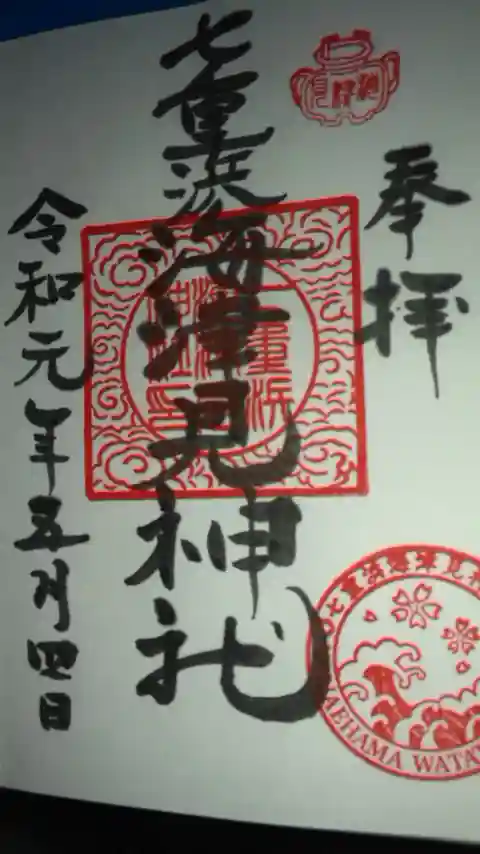 奉拝
七重浜海津見神社
令和元年五月四日
七重浜海津見神
NAEHAMA WATA